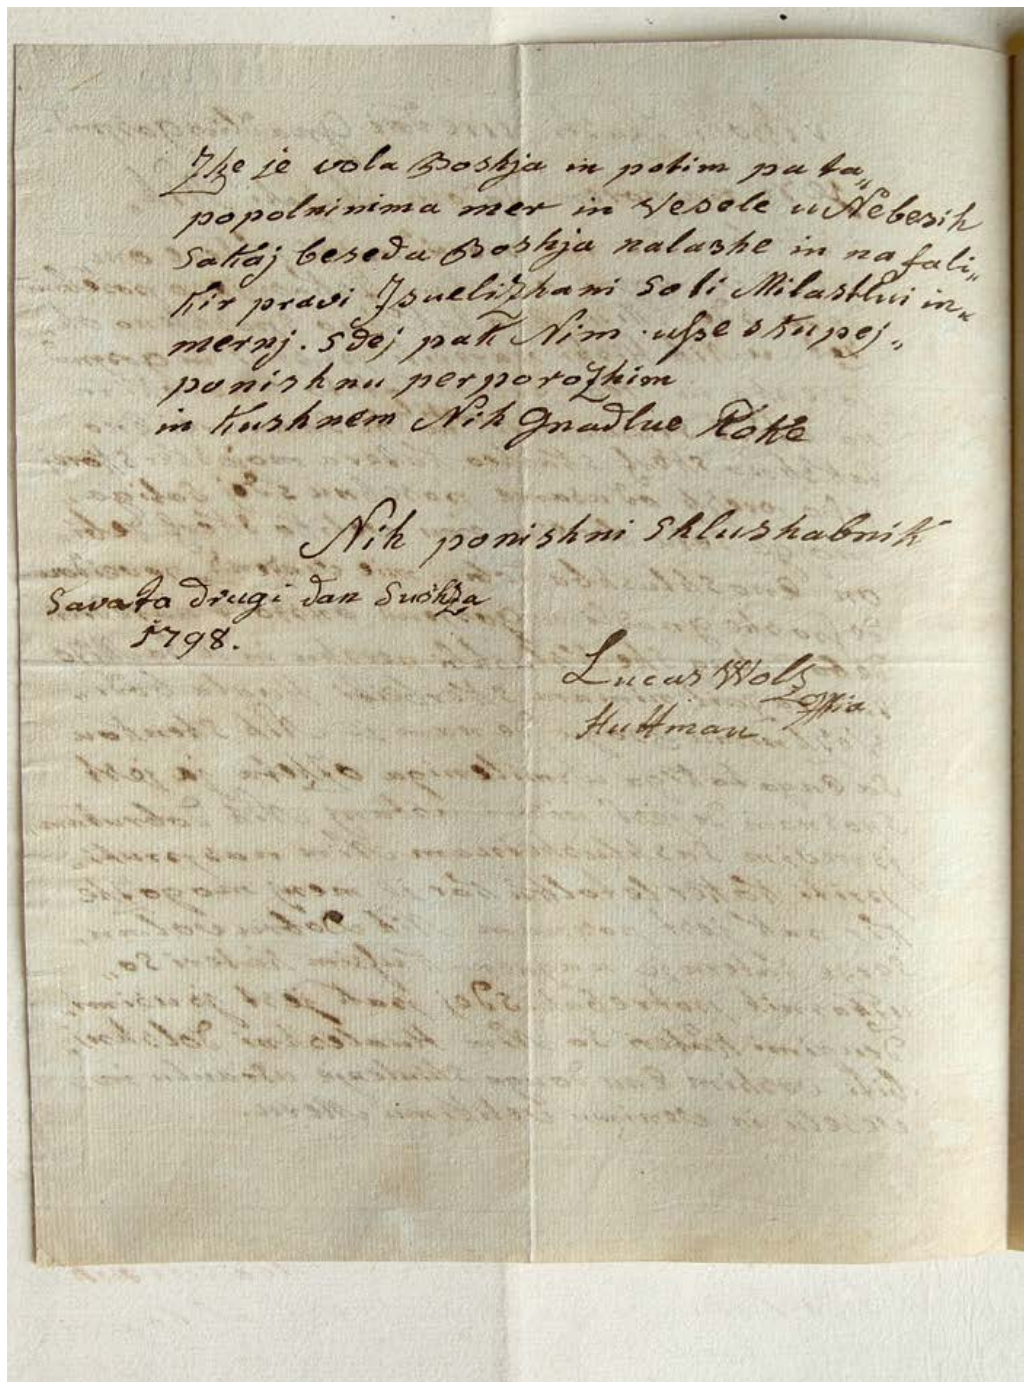 Zhe je vola Boshja in potim pa ta„
popolninima mer in vesele u Nebesih
sakaj beseda Boshja nalashe in nafali„
kir pravi Isuelizhani so ti Milastlui in„
merni. sdej pak Nim ußse skupej„
ponishnu perporozhim
in kushnem Nih gnadlue Roke
Nih ponishni shlushabnik
Sava ta drugi dan Sushza
1798.
Lucas Wols
Huttman